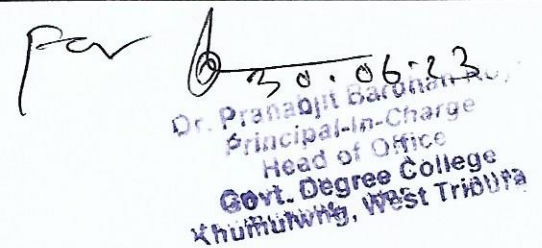 For
30.06.23
Dr. Pranabjit Bardhan
Principal-In-Charge
Head of Office
Govt. Degree College
Khumulwng, West Tripura